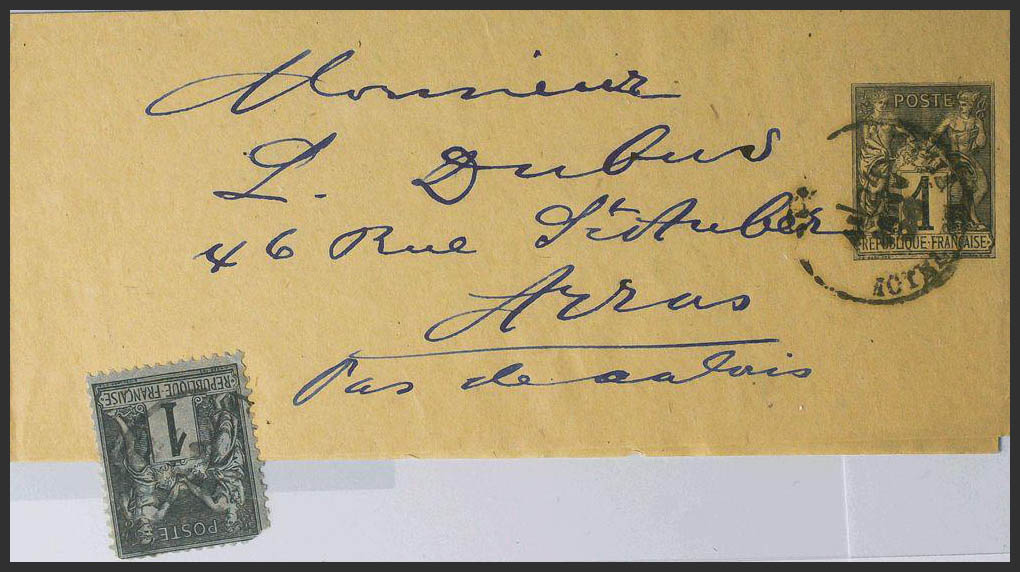 Monsieur
L. Dubus
46 Rue St Aubert
Arras
Pas de calais
POSTE
1
RÉPUBLIQUE·FRANÇAISE
POSTE
1
RÉPUBLIQUE·FRANÇAISE